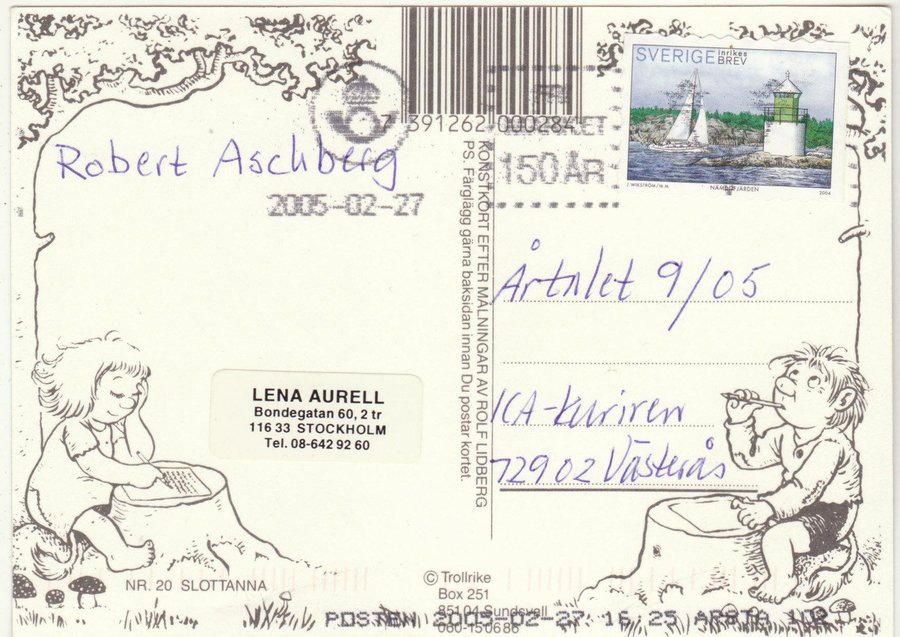 SVERIGE inrikes
BREV
J. WIKSTRÖM/H.M.
NÄMDÖFJÄRDEN
2004
7 391262 000284
150 ÅR
2005-02-27
Robert Aschberg
KONSTKORT EFTER MÅLNINGAR AV ROLF LIDBERG
PS. Färglägg gärna baksidan innan Du postar kortet.
Årtalet 9/05
ICA-kuriren
72902 Västerås
LENA AURELL
Bondegatan 60, 2 tr
116 33 STOCKHOLM
Tel. 08-642 92 60
NR. 20 SLOTTANNA
© Trollrike
Box 251
85104 Sundsvall
060-150686
POSTEN 2005-02-27 16 25 ÅRSTA